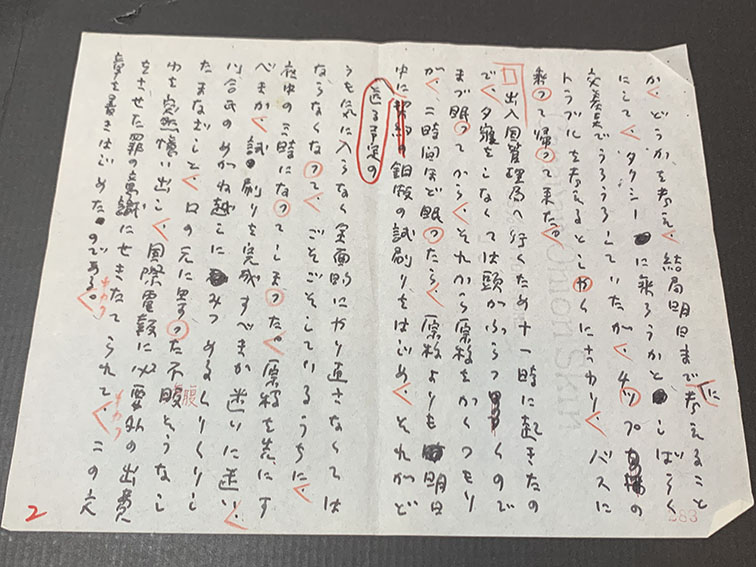 か、どうかを考え、結局明日まで考えること
にして、タクシーに乗ろうかとしばらく
交差点でうろうろしていたが、チップの
トラブルを考えるとしゃくにさわり、バスに
乗って帰って来た。
出入国管理局へ行くため十一時に起きたの
で、夕寝をしなくては頭がふらつくので
まで眠ってから、それから原稿をかくつもり
が、二時間ほど眠ったら、原稿よりも明日
中に送る予定の銅版の試刷りをはじめ、それがど
うも気に入らなく全面的にやり直さなくては
ならなくなって、ごそごそしているうちに、
夜中の三時になってしまった。原稿を先にす
べきか、試刷りを完成すべきか迷いに迷い、
川合氏のめがね越しにみつめるくりくりし
たまなざしと、口の元に集った不服そうなし
わを突然憶い出し、国際電報に必要外の出費
をさせた罪の意識にせきたてられて、この文
章を書きはじめたのである。
キカフ
キカフ
腹
2
383